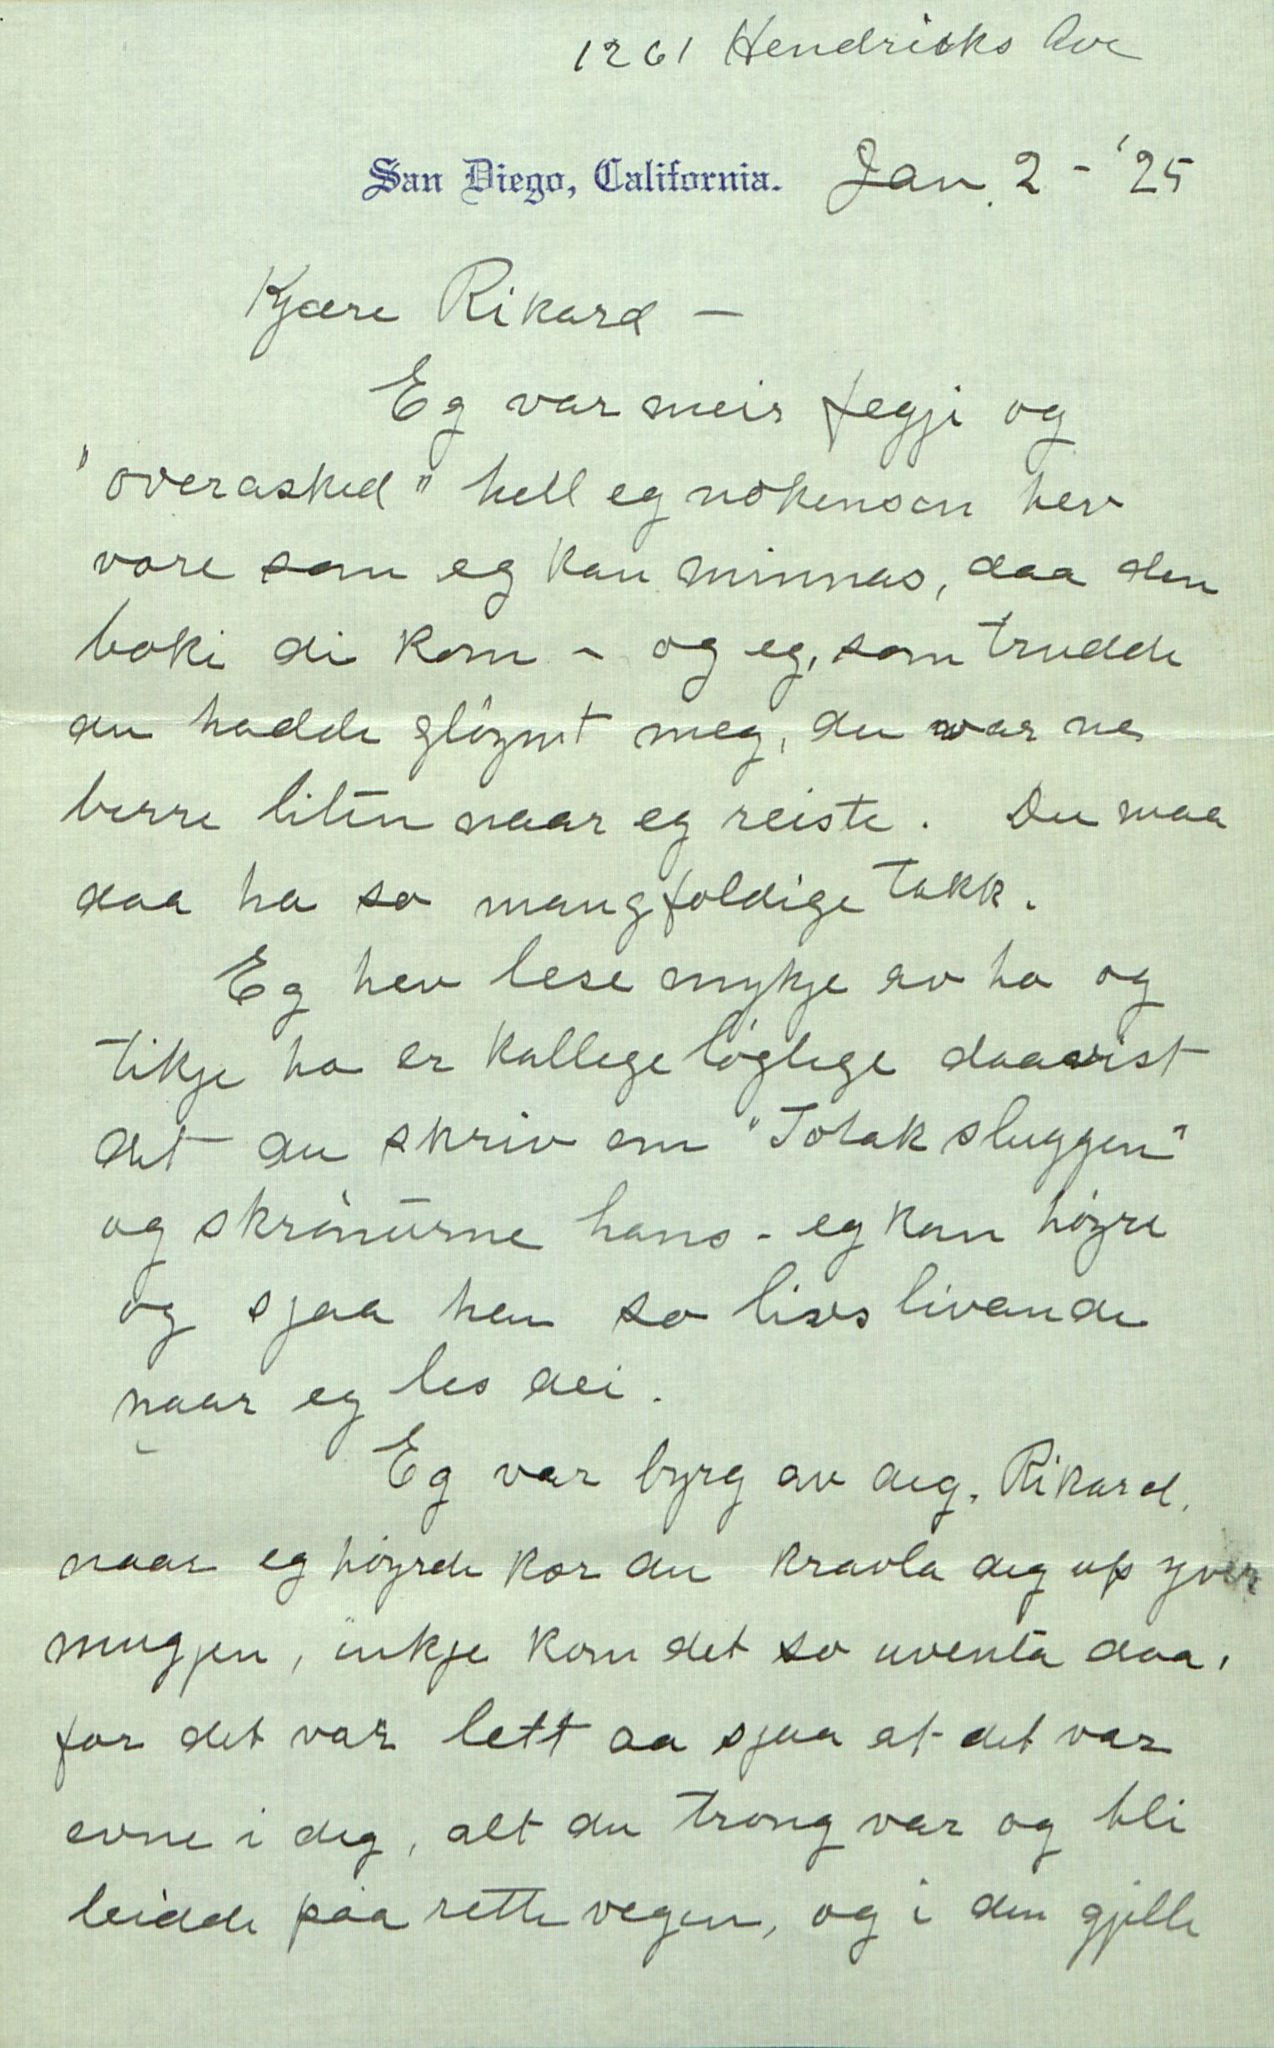 1261 Hendricks Ave
San Diego, California. Jan. 2 - '25
Kjære Rikard —
Eg var meir fegji og
"overasked" hell eg nokensen hev
vore som eg kan minnas, daa den
boki di kom - og eg, som trudde
du hadde glöymt meg, du var ne
berre liten naar eg reiste. Du maa
daa ha so mangfoldige takk.
Eg hev lese mykje av ho og
tikje ho er kallege löglege daa vist
det du skriv om "Totak sluggen"
og skrönurne hans - eg kan höyre
og sjaa han so livs livande
naar eg les dei.
Eg var byrg av deg, Rikard,
naar eg höyrde kor du kravla deg up yver
mugjen, inkje kom det so uventa daa,
for det var lett aa sjaa at det var
evne i deg, alt du trong var og bli
leidde paa rette vegen, og i den gjille